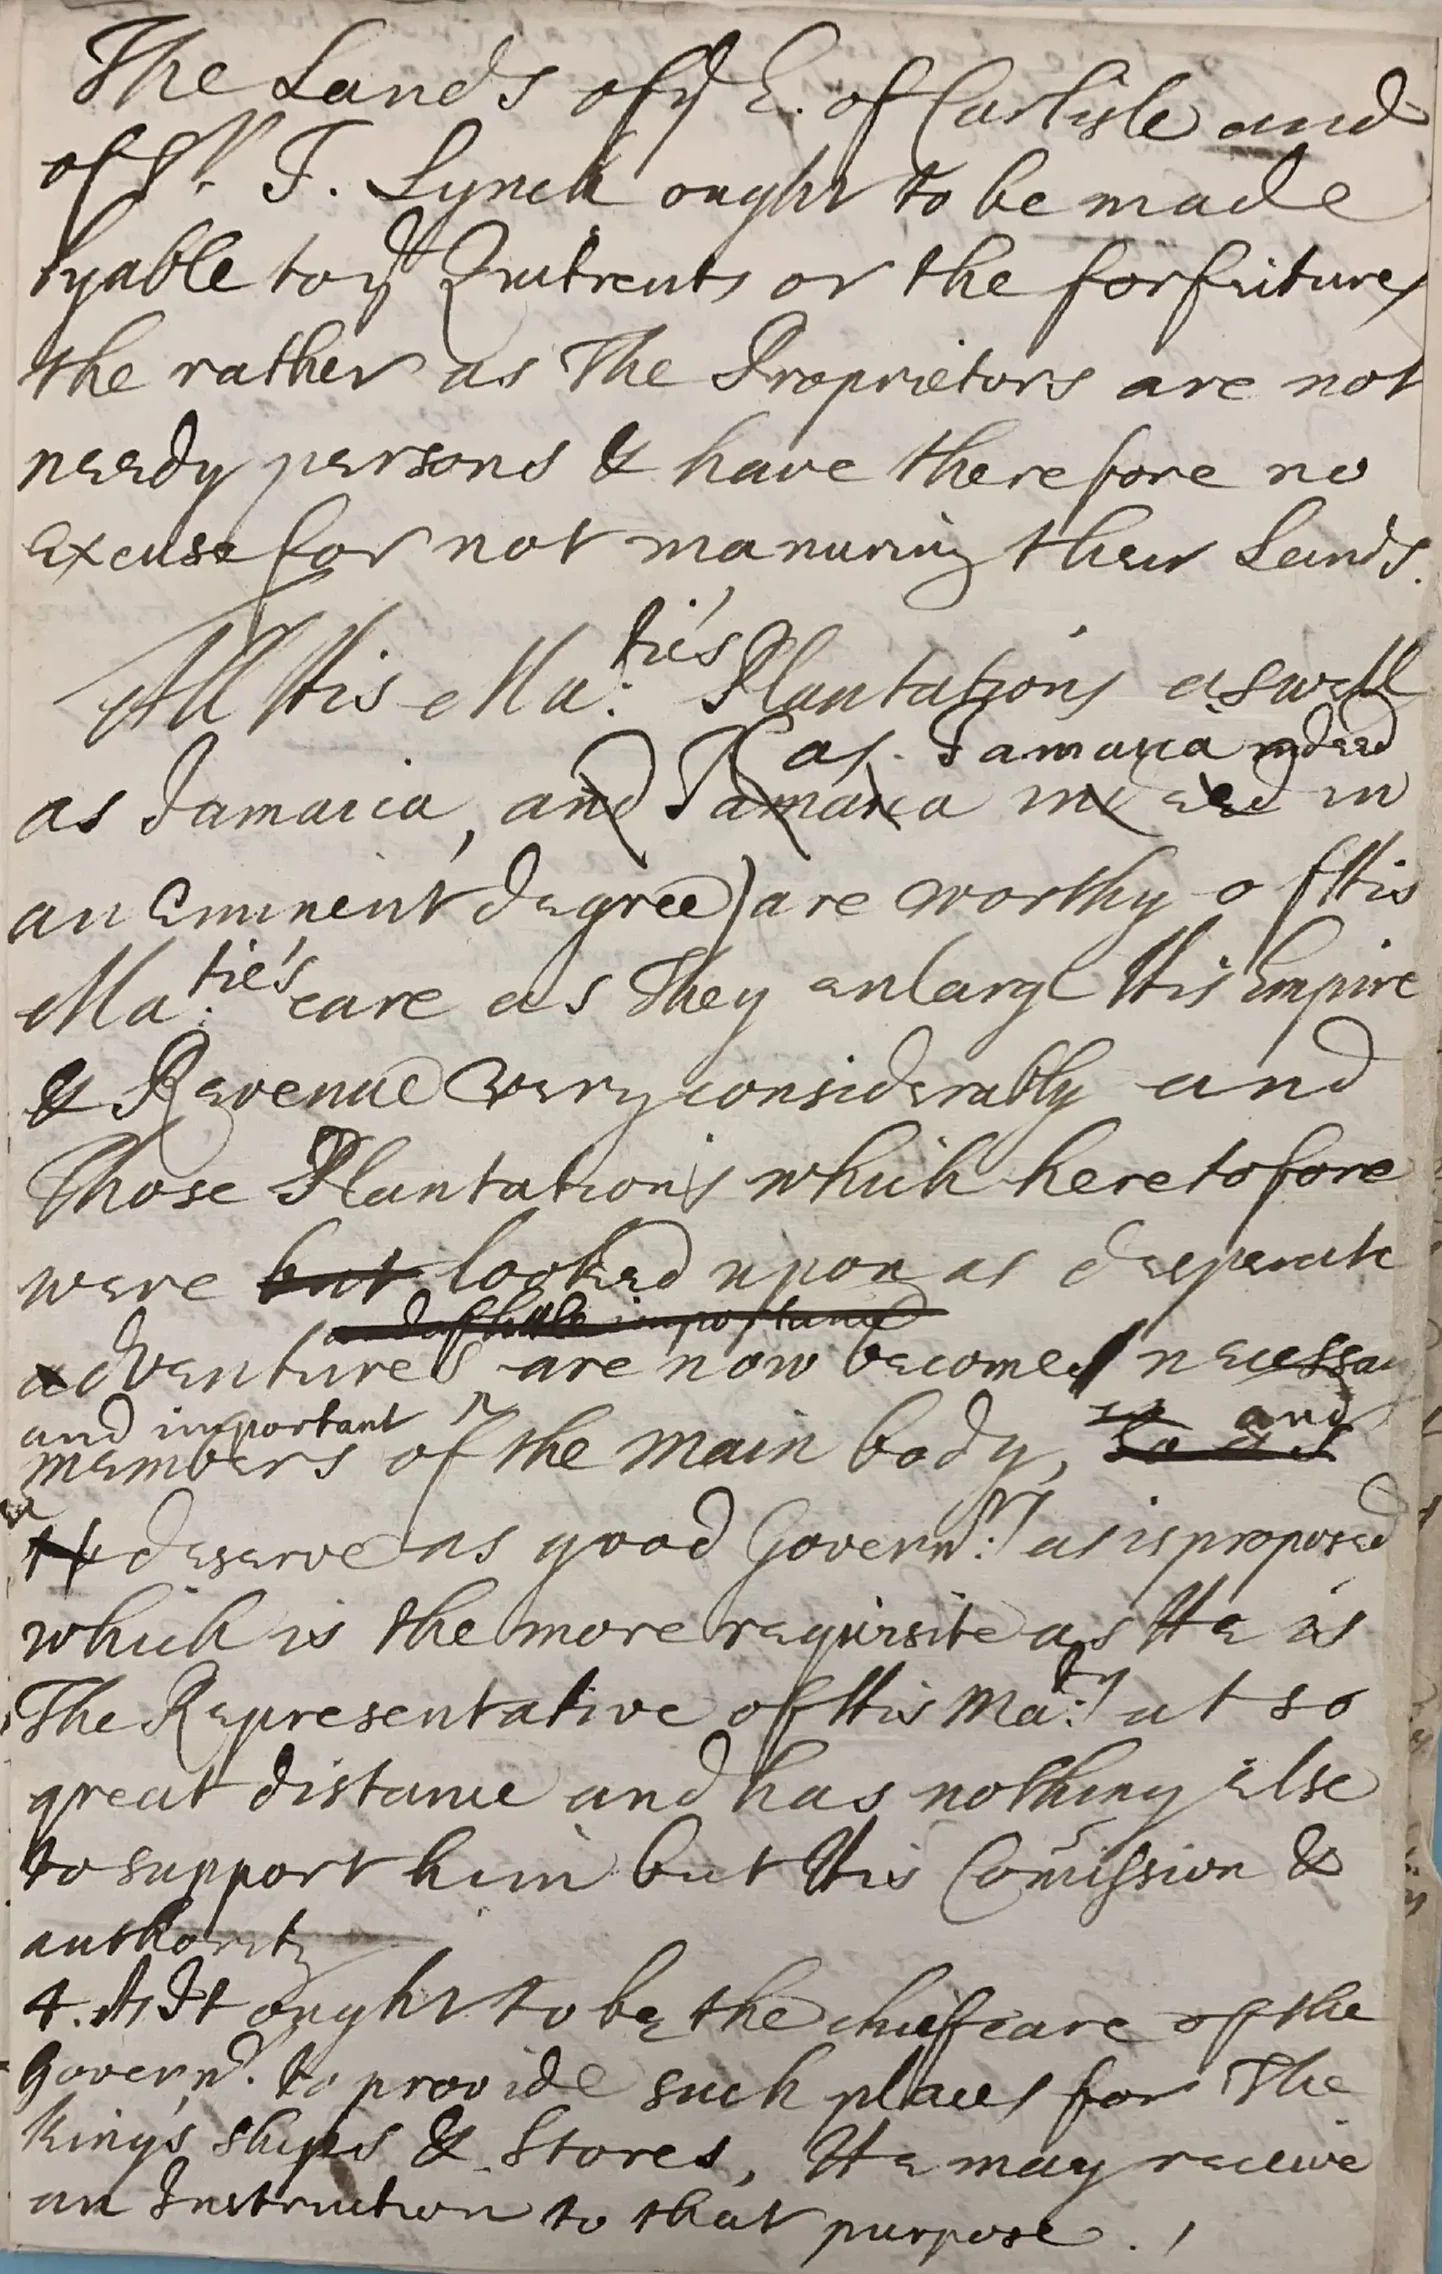 The Lands of yᵉ E. of Carlisle and
of Sʳ. T. Lynch ought to be made
lyable to yᵉ Quitrents or the forfeitures
the rather as The Proprietors are not
needy persons & have therefore no
excuse for not manuring their Lands.
All His Ma:ᵗⁱᵉ'ˢ Plantations aswell
(as. Jamaica indeed
as Jamaica, and Jamaica indeed in
an Eminent degree) are worthy of His
Ma:ᵗⁱᵉ'ˢ care as They enlarge His Empire
& Revenue very considerably and
Those Plantations which heretofore
were but looked upon as desperate
and of little importance
adventures are now become necessary
and important
members of the main body, so as and
deserve as good Governʳ: as is proposed
which is the more requisite as He is
The Representative of His Ma:ᵗʸ at so
great distance and has nothing else
to support him but His Comission &
authority
4. As It ought to be the chief care of the
Governʳ. to provide such places for The
King's ships & Stores, He may receive
an Instruction to that purpose.